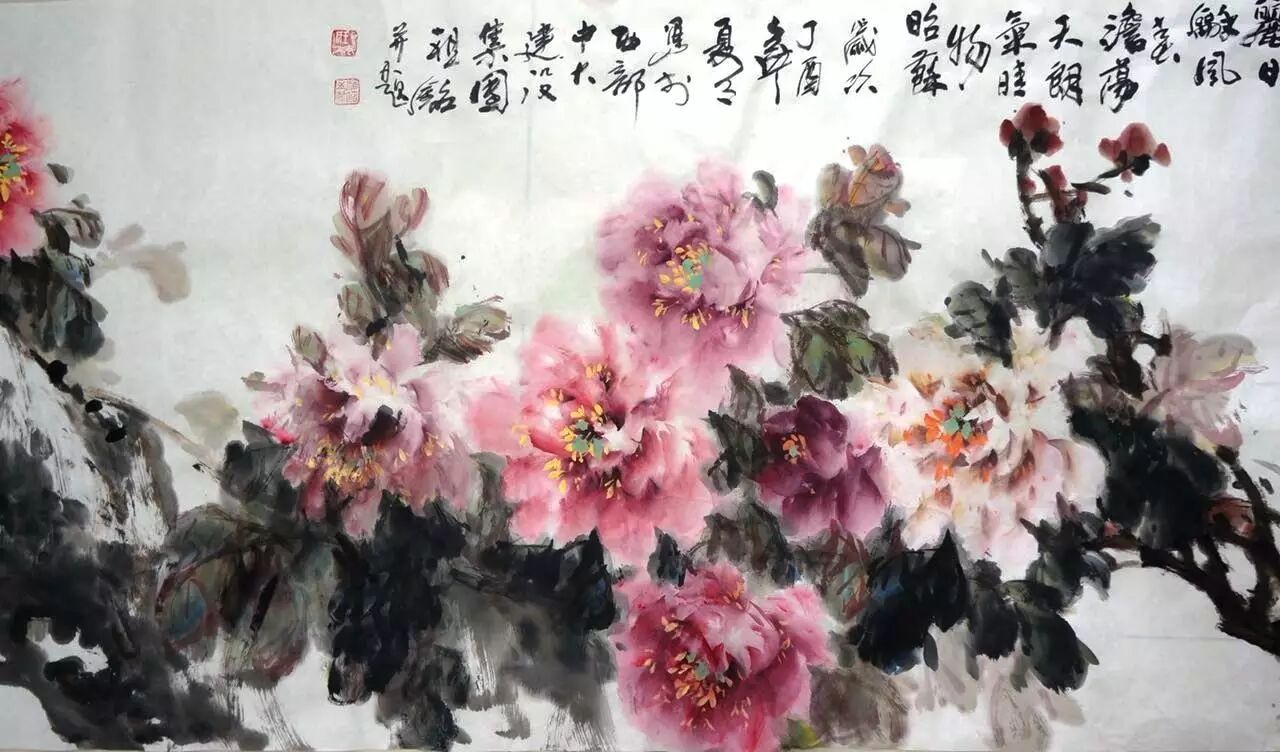 麗日
風
春
澹蕩
天朗
氣晴
物
昭蘇
歲次
丁酉
年
夏
寫於
西部
中大
建設
集團
祖銘
并題